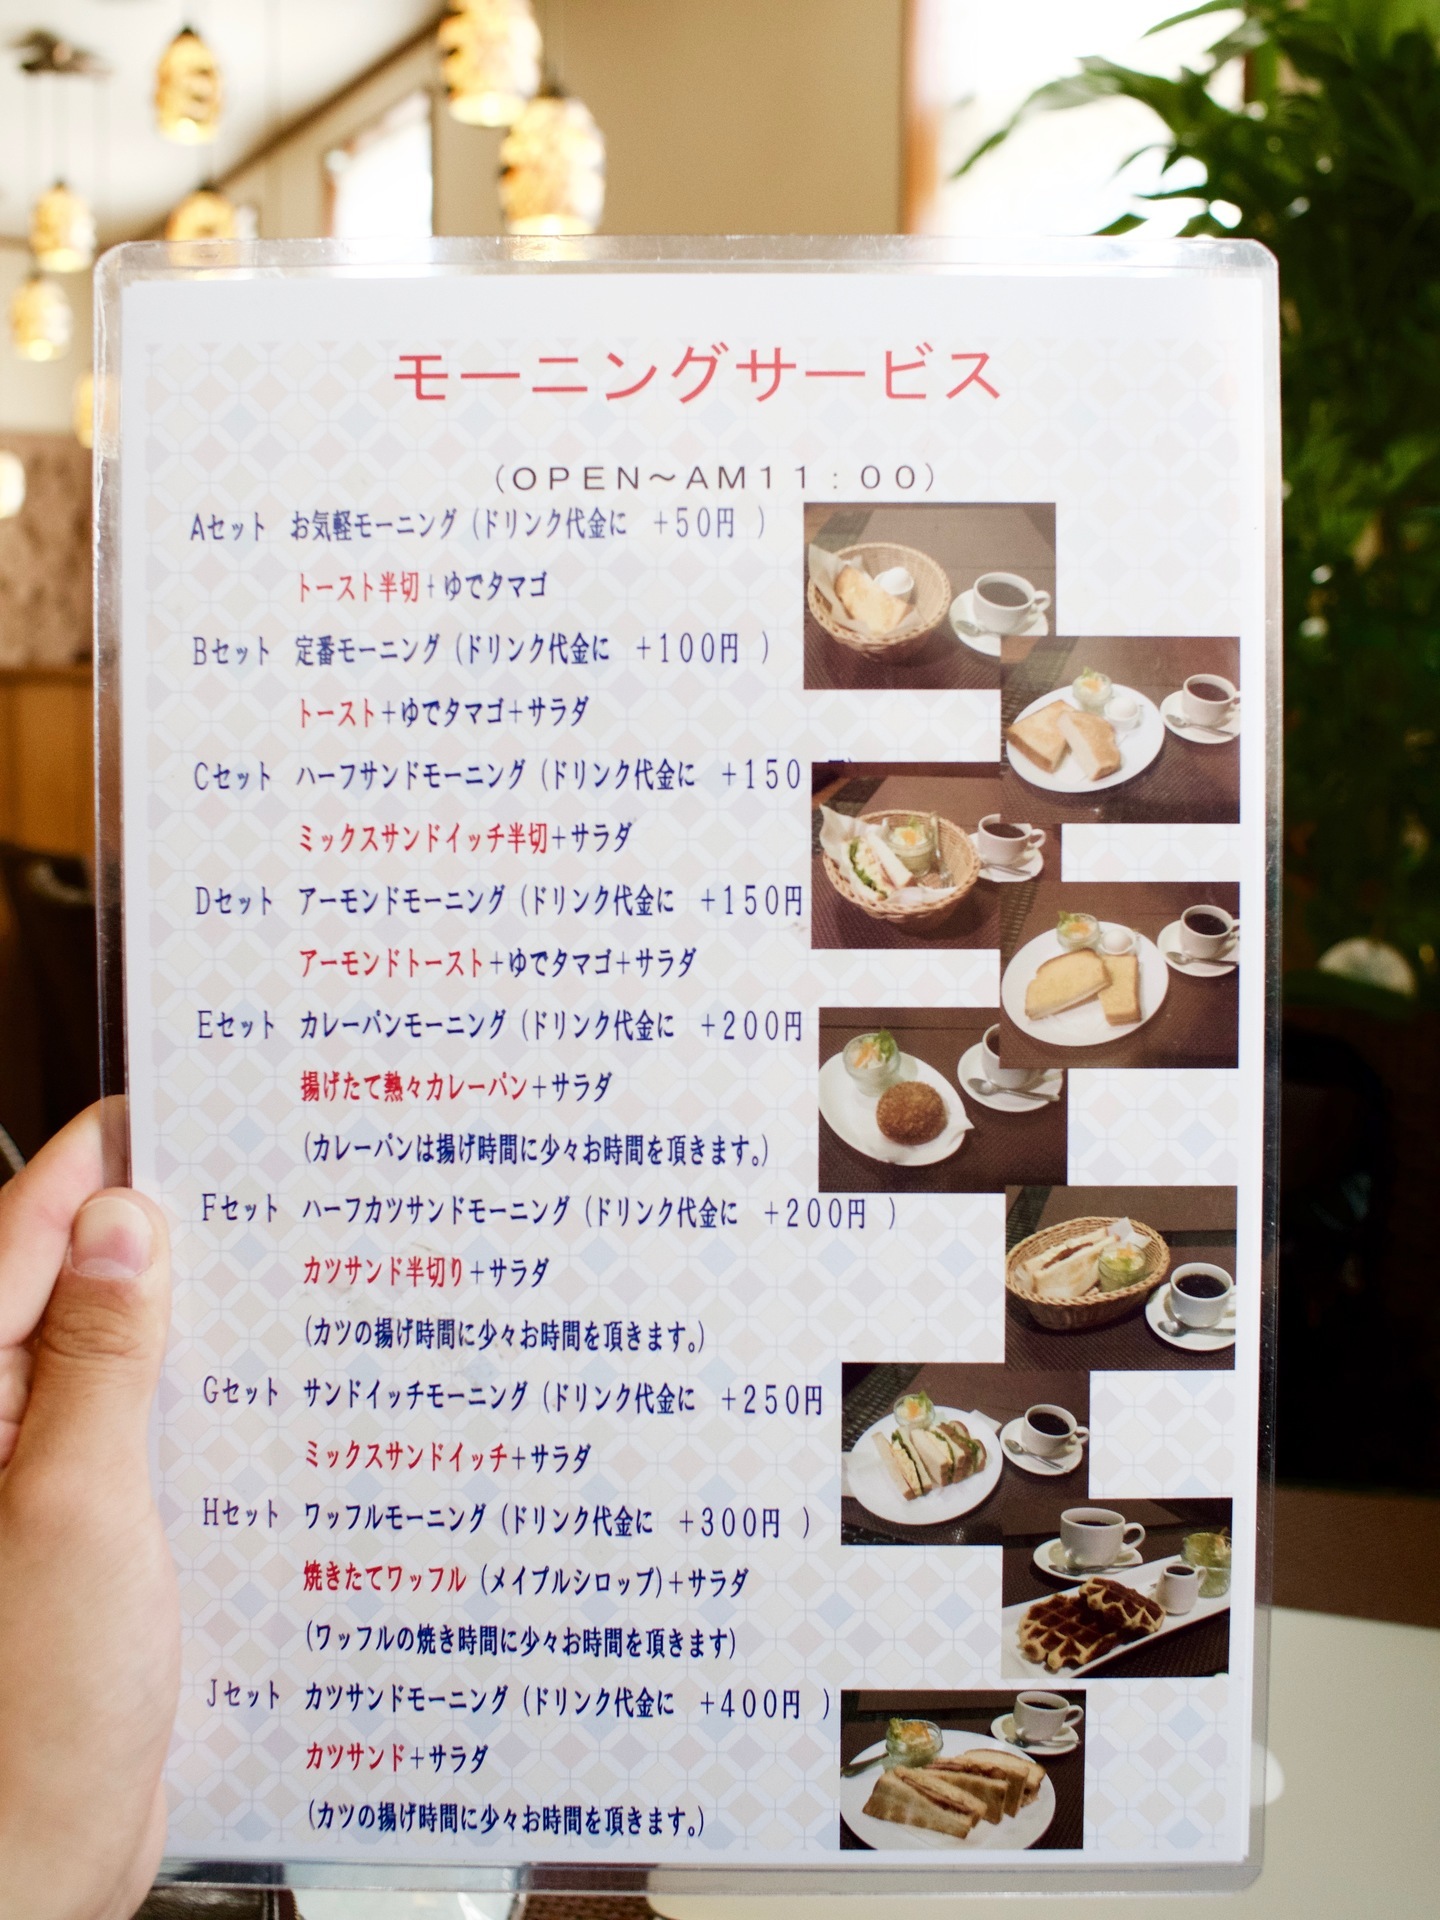 モーニングサービス
(OPEN～AM11：00)
Aセット お気軽モーニング (ドリンク代金に +50円 )
トースト半切+ゆでタマゴ
Bセット 定番モーニング (ドリンク代金に +100円 )
トースト+ゆでタマゴ+サラダ
Cセット ハーフサンドモーニング (ドリンク代金に +150
ミックスサンドイッチ半切+サラダ
Dセット アーモンドモーニング (ドリンク代金に +150円
アーモンドトースト+ゆでタマゴ+サラダ
Eセット カレーパンモーニング (ドリンク代金に +200円
揚げたて熱々カレーパン+サラダ
(カレーパンは揚げ時間に少々お時間を頂きます。)
Fセット ハーフカツサンドモーニング (ドリンク代金に +200円 )
カツサンド半切り+サラダ
(カツの揚げ時間に少々お時間を頂きます。)
Gセット サンドイッチモーニング (ドリンク代金に +250円
ミックスサンドイッチ+サラダ
Hセット ワッフルモーニング (ドリンク代金に +300円 )
焼きたてワッフル (メイプルシロップ)+サラダ
(ワッフルの焼き時間に少々お時間を頂きます)
Jセット カツサンドモーニング (ドリンク代金に +400円 )
カツサンド+サラダ
(カツの揚げ時間に少々お時間を頂きます。)